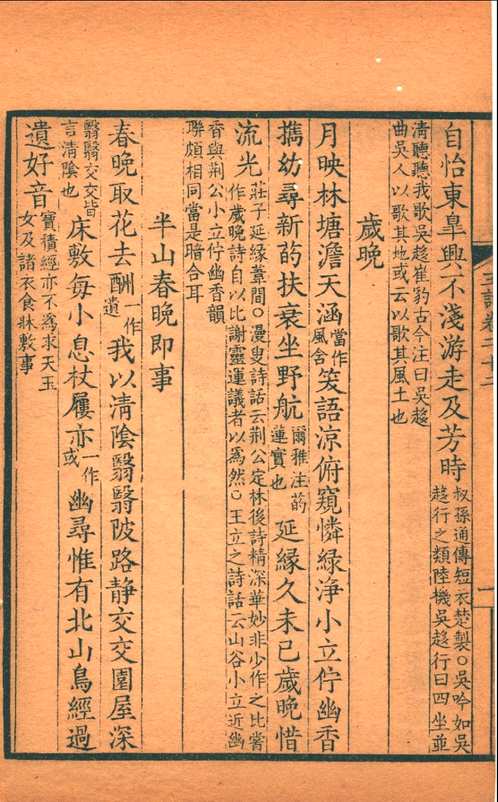 自怡東皐興不淺游走及芳時叔孫通傳短衣楚製○吳吟如吳趍行之類陸機吳趍行曰四坐並
清聽聽我歌吳趍崔豹古今注曰吳趍曲吳人以歌其地或云以歌其風土也
歲晚
月映林塘澹天涵當作風含笑語涼俯窺憐緑浄小立佇幽香
攜幼尋新菂扶衰坐野航爾雅注菂蓮實也延緣久未已歲晚惜
流光莊子延緣葦間○漫叟詩話云荆公定林後詩精深華妙非少作之比嘗作歲晚詩自以比謝靈運議者以爲然○王立之詩話云山谷小立近幽
香與荆公小立佇幽香韻聯頗相同當是暗合耳
半山春晚即事
春晚取花去酬一作遺我以清陰翳翳陂路静交交園屋深
翳翳交交皆言清陰也床敷每小息杖屨亦一作或幽尋惟有北山鳥經過
遺好音寶積經亦不爲求天玉女及諸衣食牀敷事